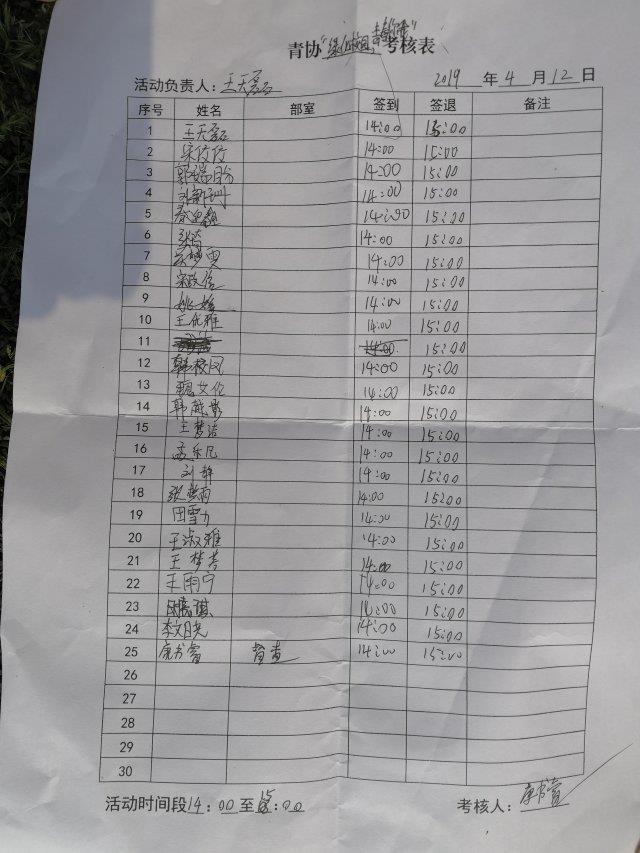 青协"绿化校园,青春作伴"考核表
活动负责人:王天磊 2019 年 4 月 12 日
序号 姓名 部室 签到 签退 备注
1 王天磊 14:00 15:00
2 宋佼佼 14:00 15:00
3 14:00 15:00
4 14:00 15:00
5 14:00 15:00
6 张奇 14:00 15:00
7 14:00 15:00
8 14:00 15:00
9 姚婷 14:00 15:00
10 王优雅 14:00 15:00
11 14:00 15:00
12 14:00 15:00
13 魏文伦 14:00 15:00
14 14:00 15:00
15 王梦洁 14:00 15:00
16 孟乐凡 14:00 15:00
17 刘静 14:00 15:00
18 14:00 15:00
19 田雪力 14:00 15:00
20 王淑雅 14:00 15:00
21 王梦芳 14:00 15:00
22 王雨宁 14:00 15:00
23 14:00 15:00
24 李文月 14:00 15:00
25 康书睿 督查 14:00 15:00
26
27
28
29
30
活动时间段14:00至15:00 考核人:康书睿